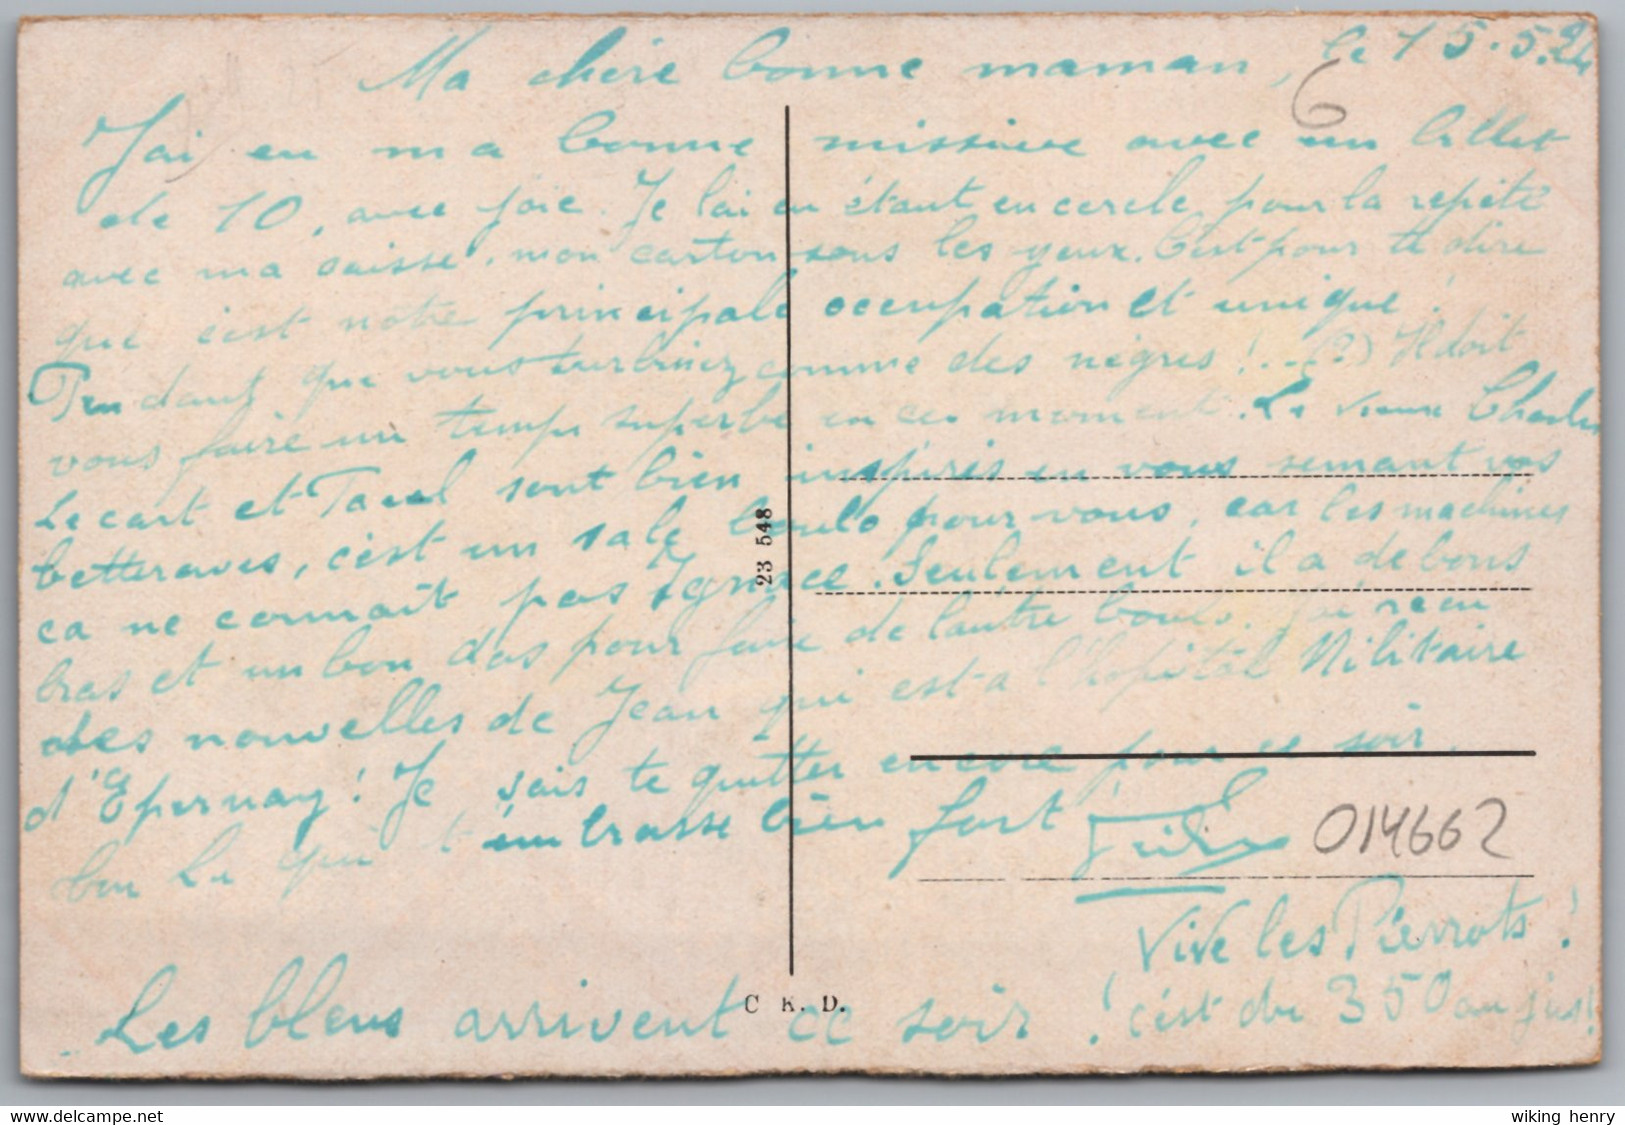 Ma chère bonne maman, le 15.5.24
6
J'ai eu ma bonne missive avec un billet
de 10, avec joie. Je l'ai eu étant en cercle pour la
avec ma caisse, mon carton sous les yeux. C'est pour te dire
que c'est notre principale occupation et unique!
Pendant que vous turbinez comme des nègres!...(?) Il doit
vous faire un temps superbe en ce moment. Le vieux Charles
Lecart et sont bien inspirés en vous semant vos
betteraves, c'est un sale boulo pour vous, car les machines
ca ne connait pas Ignace. Seulement il a de bons
bras et un bon dos pour faire de l'autre boulo. J'ai recu
des nouvelles de Jean qui est a l'Hopital Militaire
d'Epernay! Je vais te quitter encore pour ce soir.
qui t'embrasse bien fort
014662
Vive les Pierrots!
Les bleus arrivent ce soir! c'est du 350 au jus!
23 548
C K. D.
www.delcampe.net
wiking henry